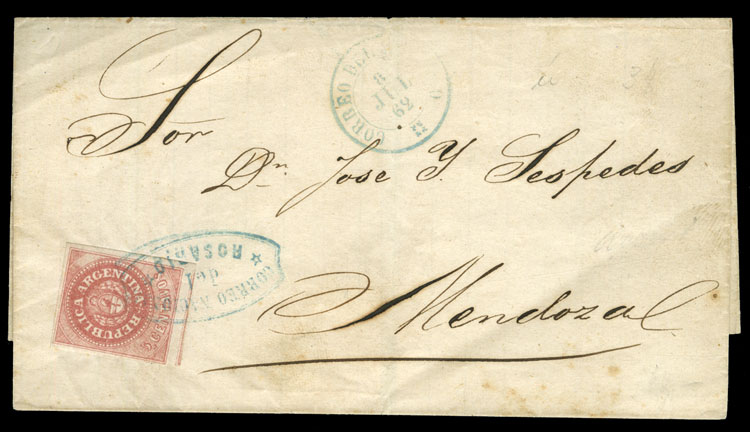 CORREO DEL R
8
JUL
62
Sor
Dn Jose Y. Sespedes
Mendoza
REPUBLICA ARGENTINA
5 CENTAVOS
CORREO
del
ROSARIO